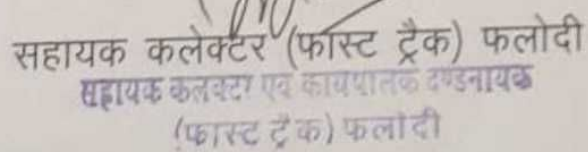 सहायक कलेक्टर (फास्ट ट्रैक) फलोदी
सहायक कलक्टर एवं कार्यपालक दण्डनायक
(फास्ट ट्रेक) फलोदी